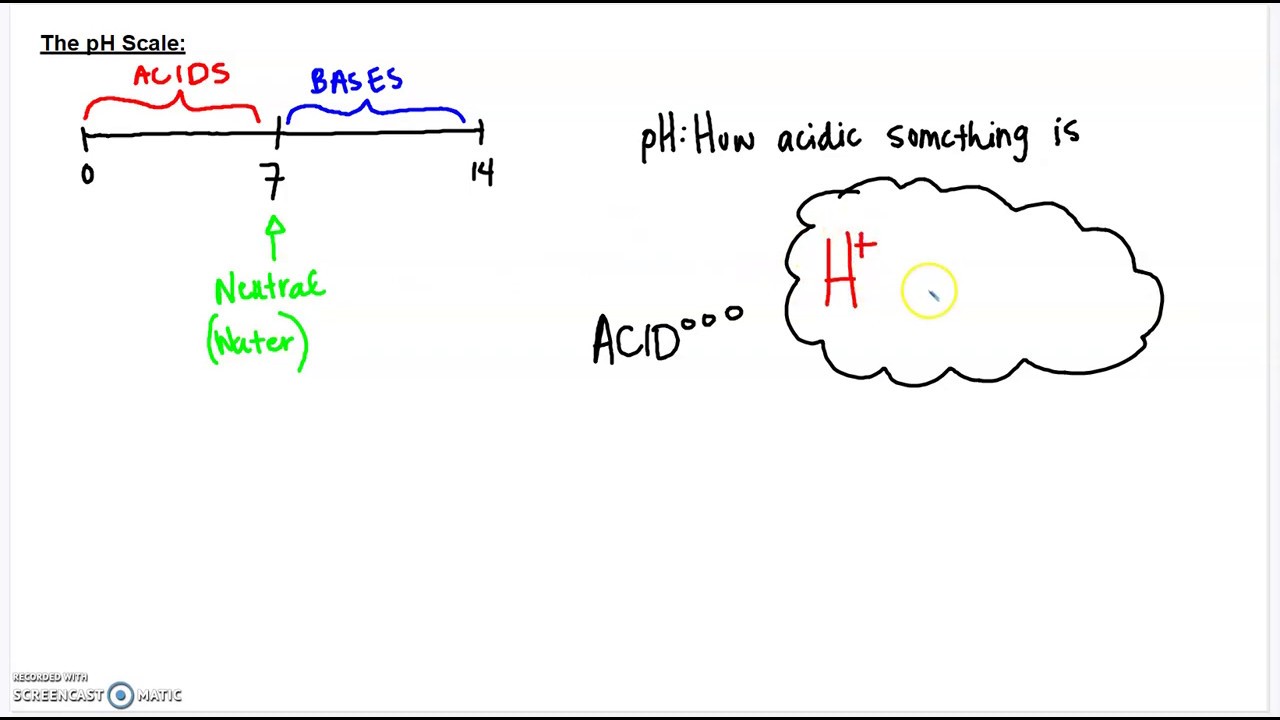 The pH Scale:
ACIDS
BASES
0
7
14
Neutral
(Water)
pH: How acidic something is
H+
ACID
RECORDED WITH
SCREENCAST MATIC